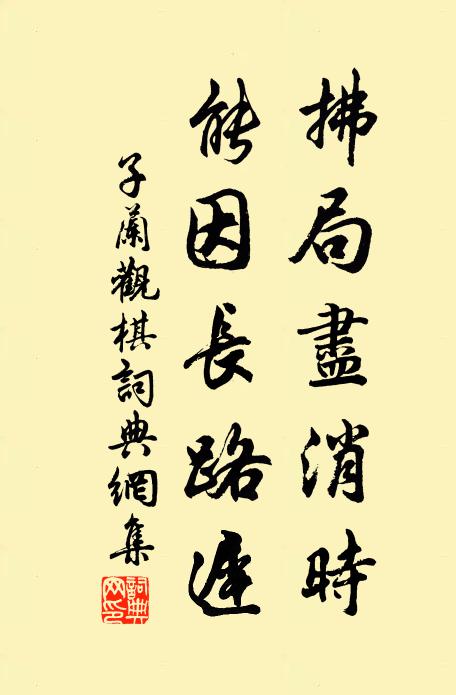 拂局盡消時
能因長路遲
子蘭觀棋詞典網集
詞典網印